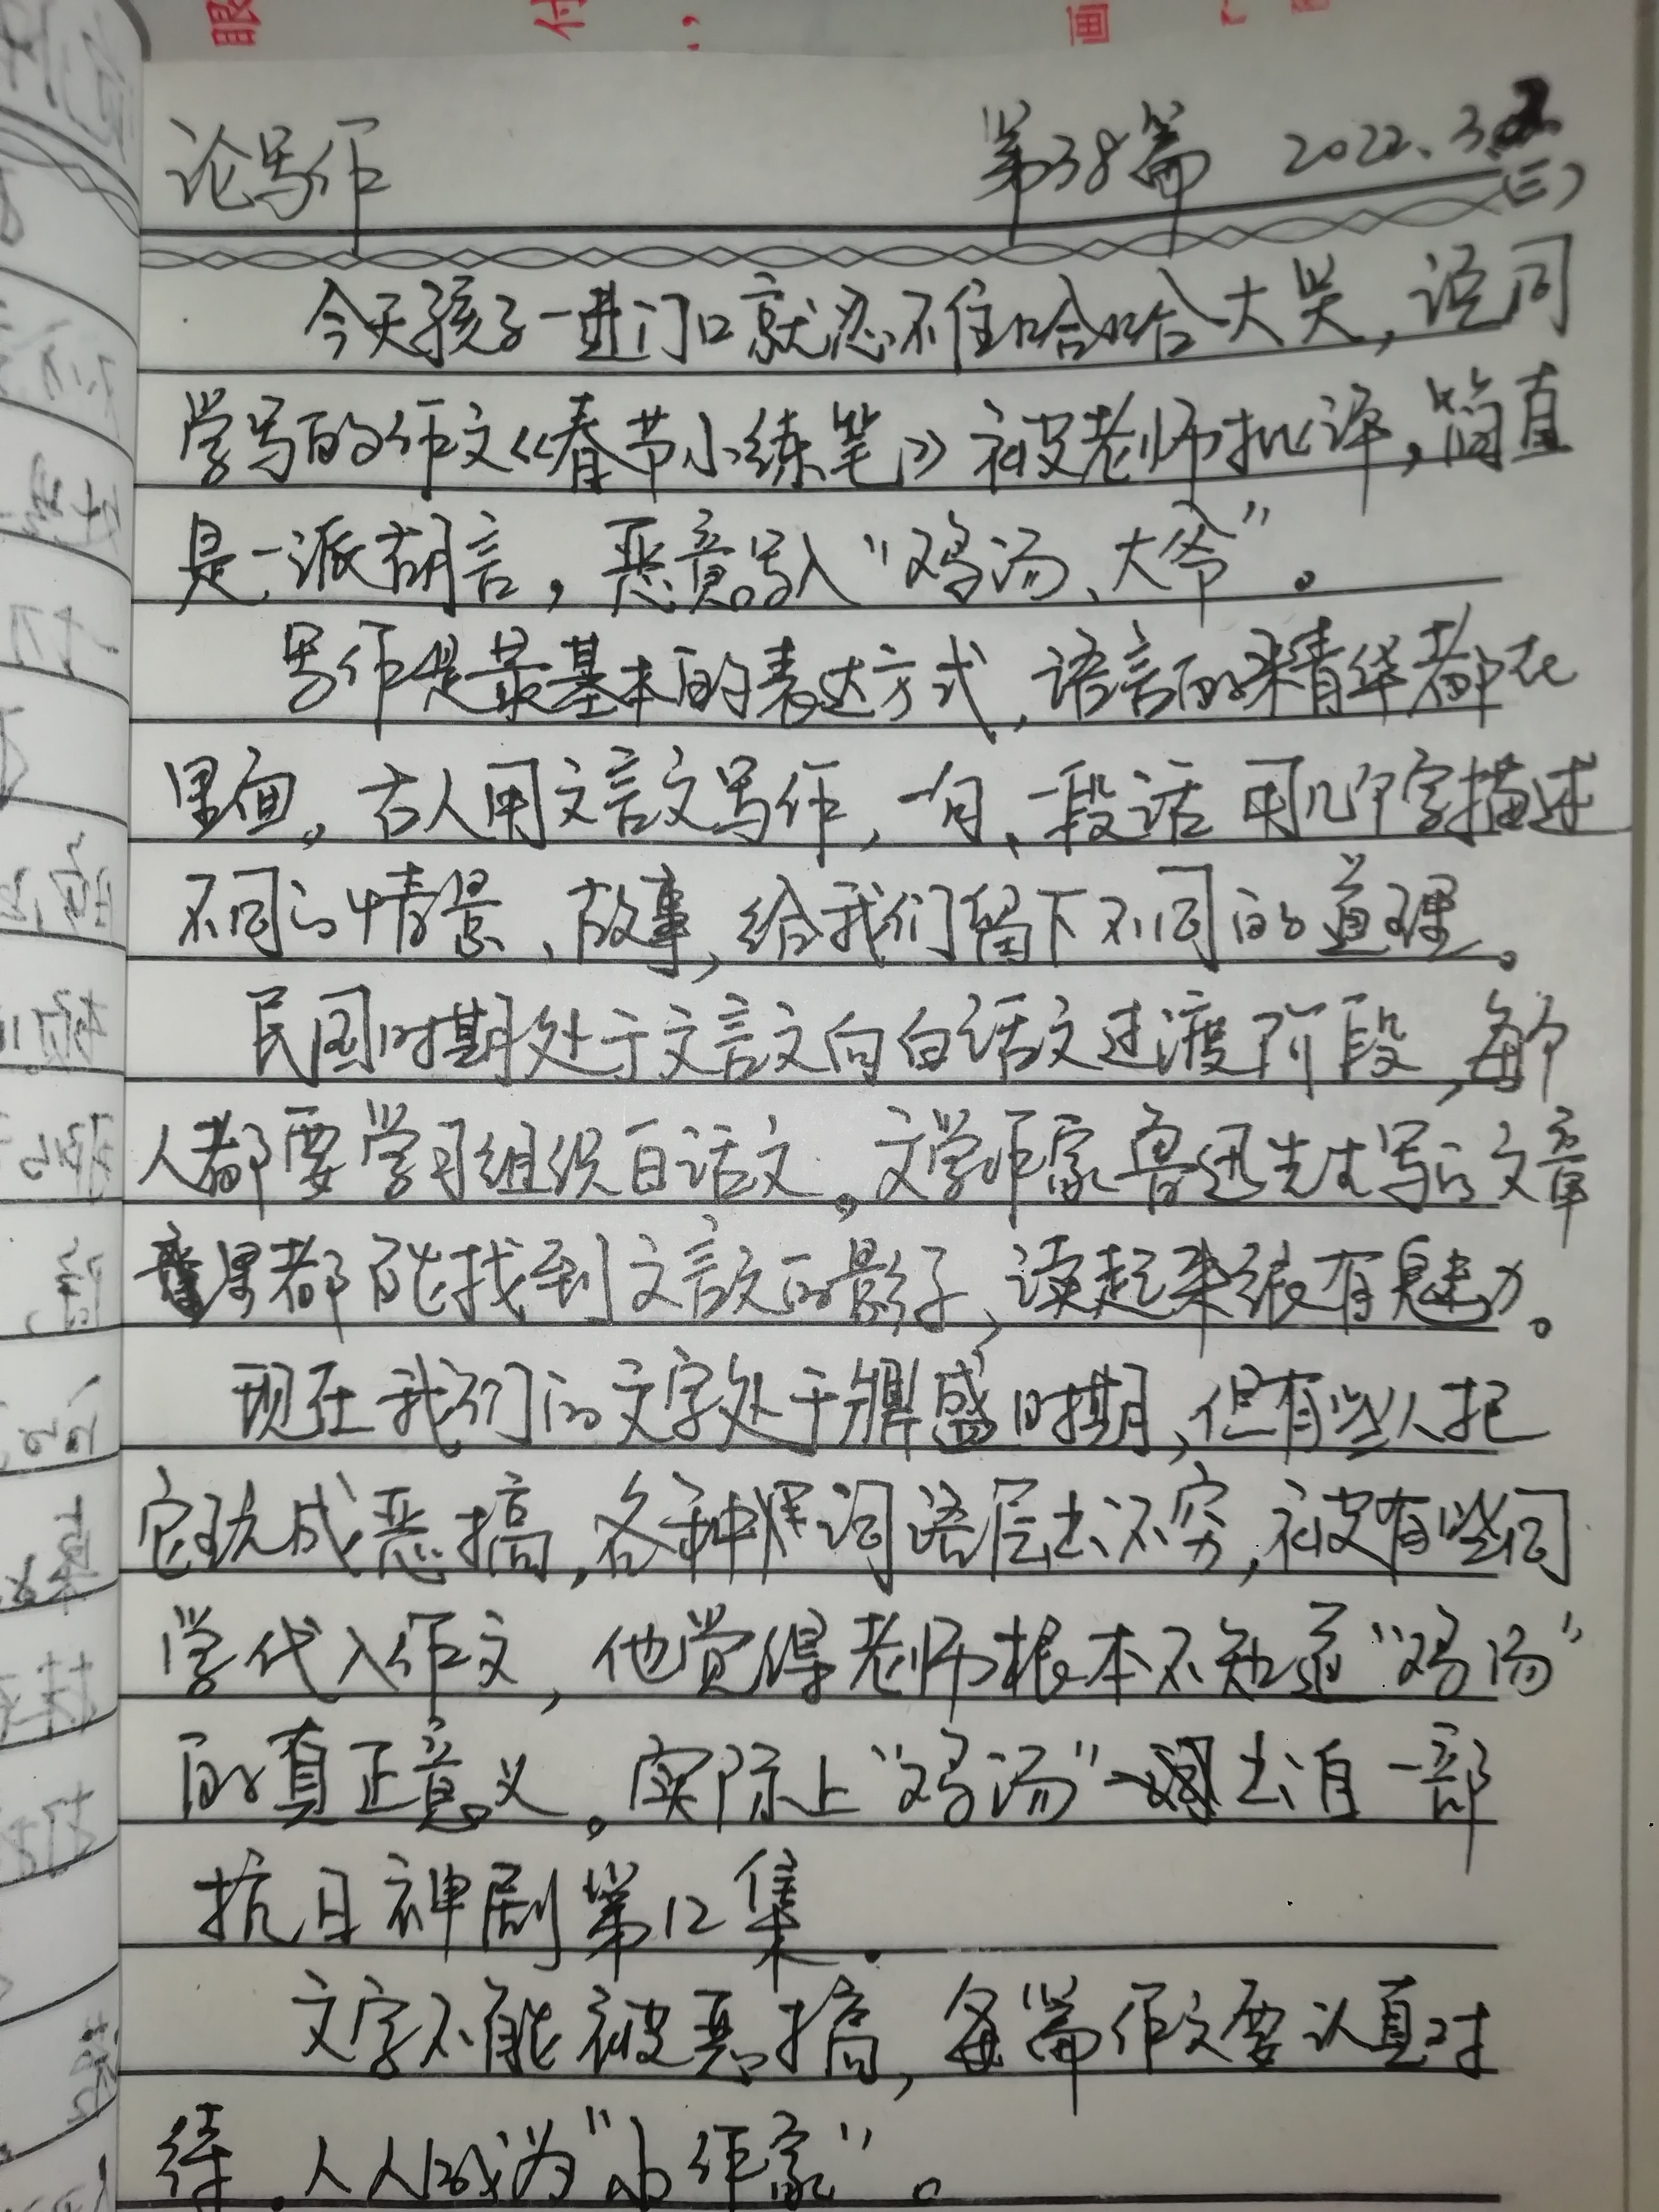 论写作 第38篇 2022.3.2
(三)
今天孩子一进门口就忍不住哈哈大笑，说同
学写的作文《春节小练笔》被老师批评，简直
是一派胡言，恶意写入“鸡汤、大爷”。
写作是最基本的表达方式，语言的精华都在
里面。古人用文言文写作，一句、一段话用几个字描述
不同的情景、故事，给我们留下不同的道理。
民国时期处于文言文向白话文过渡阶段，每个
人都要学习组织白话文。文学作家鲁迅先生写的文章
里都能找到文言文的影子，读起来很有魅力。
现在我们的文字处于鼎盛时期，但有些人把
它玩成恶搞，各种怪词语层出不穷，被有些同
学代入作文，他觉得老师根本不知道“鸡汤”
的真正意义。实际上“鸡汤”一词出自一部
抗日神剧第12集.
文字不能被恶搞，每篇作文要认真对
待.人人成为“小作家”。